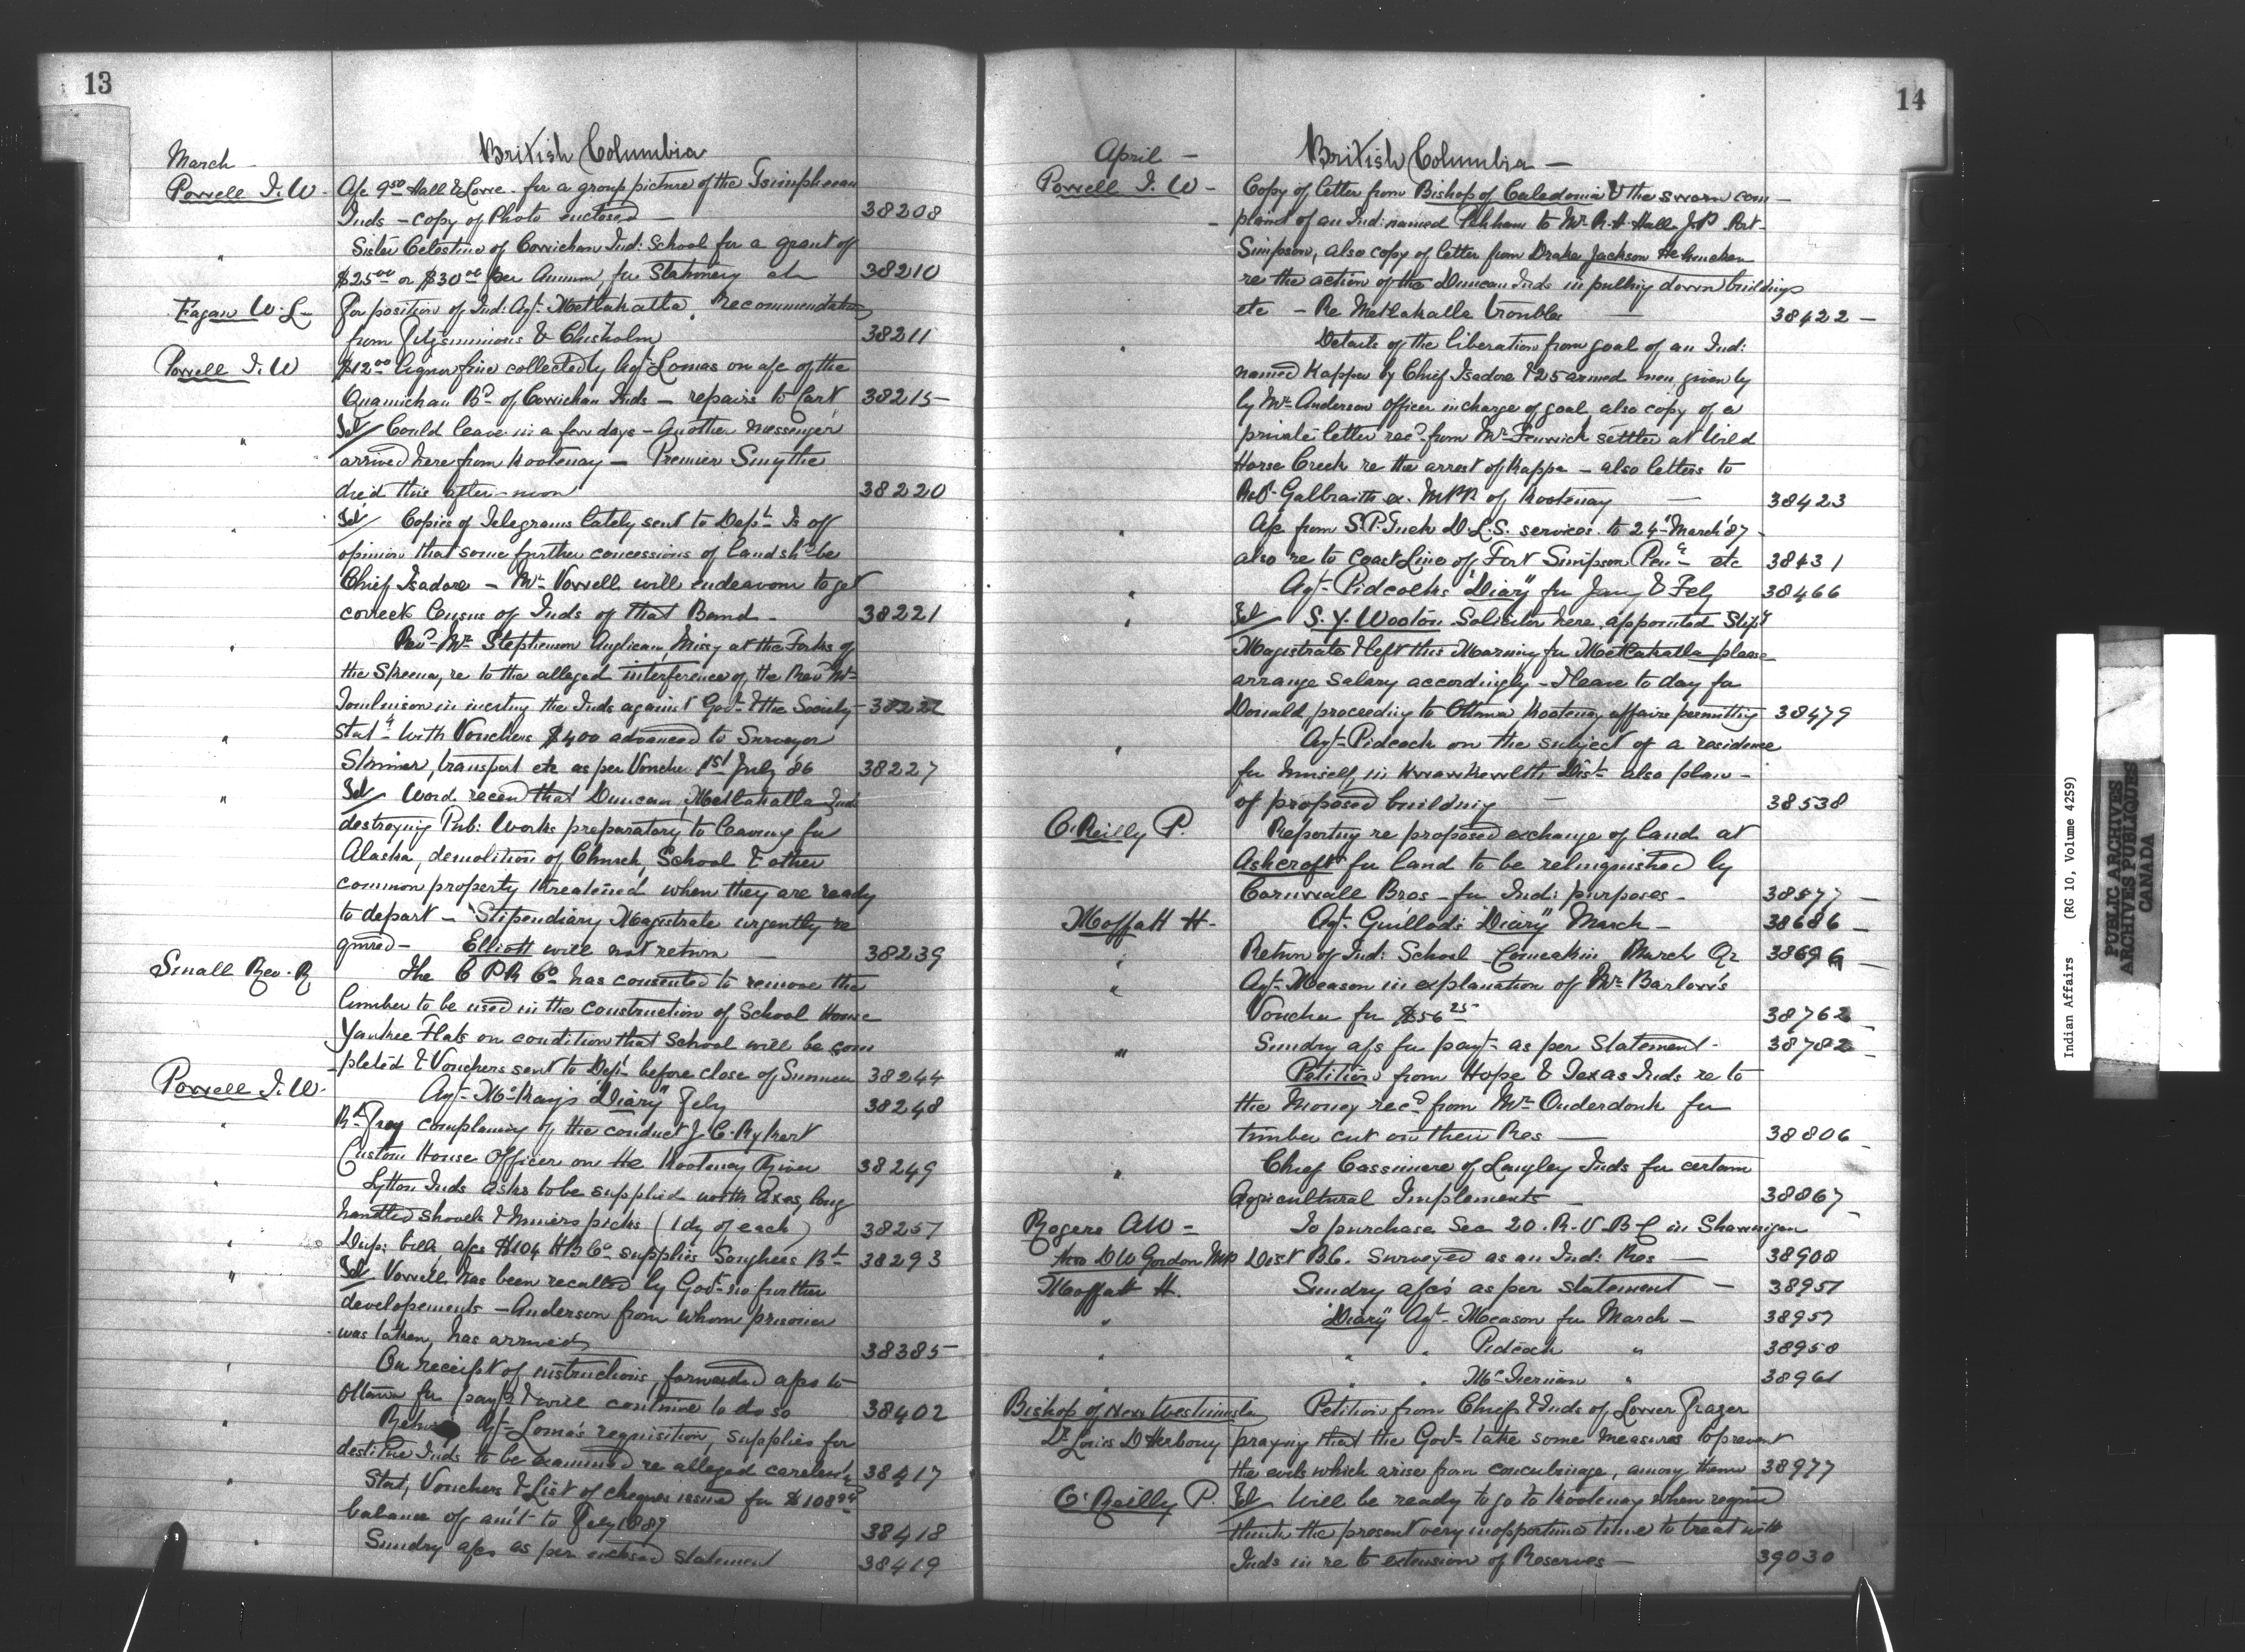 13
March
British Columbia
Powell I. W - A/c 9.50 Hall & Lowe - for a group picture of the Tsimpshean
Inds - copy of Photo enclosed - 38208
" Sister Celestine of Cowichan Ind: School for a grant of
$25.00 or $30.00 per Annum, for Stationery etc 38210
Fagan W. L - For position of Ind: Agt. Metlakatla. Recommendation
from Fitzsimmons & Chisholm 38211
Powell I. W $12.00 liquor fine collected by Agt. Lomas on a/c of the
Quamichan Bd. of Cowichan Inds - repairs to Cart 38215
" Tel/ Could leave in a few days - Another Messenger
arrived here from Kootenay - Premier Smythe
died this after-noon 38220
" Tel/ Copies of Telegrams lately sent to Dept. Is off
opinion that some further concessions of land shd be
Chief Isadore - Mr. Vowell will endeavour to get
correct Census of Inds of that Band - 38221
" Revd. Mr. Stephenson Anglican Missy at the Forks of
the Skeena, re to the alleged interference of the Revd Mr.
Tomlinson in inciting the Inds against Govt. & the Society 38222
" Stat. with Vouchers $400 advanced to Surveyor
Skinner, transport etc as per Voucher 1st July 86 38227
" Tel/ Word recevd that Duncan, Metlakatla Inds
destroying Pub: Works preparatory to leaving for
Alaska, demolition of Church, School & other
common property threatened when they are ready
to depart - Stipendiary Magistrate urgently re
quired - Elliott will not return - 38239
Small Rev. R The C P R Co. has consented to remove the
lumber to be used in the construction of School House
Yankee Flats on condition that School will be com
pleted & Vouchers sent to Dept. before close of Summer 38244
Powell I. W. Agt. McKay's "Diary" Feby 38248
" R. Fray complaining of the conduct J. C. Rykert
Custom House Officer on the Kootenay River 38249
" Lytton Inds asks to be supplied with Axes, long
handled shovels & miners picks (1 dz of each) 38257
" a/cs $104 H B Co. supplies Songhees Bd. 38293
" Tel Vowell has been recalled by Govt. no further
developements - Anderson from whom prisoner
was taken, has arrived 38385
" On receipt of instructions, forwarded a/cs to
Ottawa for payt. & will continue to do so 38402
" Agt. Lomas requisition, supplies for
destitute Inds to be examined re alleged 38417
" Stat, Vouchers & List of cheques issued for $108
balance of amt. to Feby 1887 38418
" Sundry a/cs as per enclosed statement 38419
14
April -
British Columbia -
Powell I. W - Copy of letter from Bishop of Caledonia & the sworn com-
plaint of an Ind: named to Mr. R. H. Hall J.P. Port-
Simpson, also copy of letter from Drake Jackson Helmcken
re the action of the Duncan Inds in pulling down buildings
etc - Re Metlakatla troubles - 38422 -
" Details of the liberation from goal of an Ind:
named Kappa by Chief Isadore & 25 armed men given by
by Mr. Anderson officer in charge of goal, also copy of a
private letter recd. from Mr. Fenwick settler at Wild
Horse Creek re the arrest of Kappa - also letters to
Galbraith ex. MPP of Kootenay - 38423
" A/c from S. P. Tuck D. L. S. services to 24th March '87 -
also re to Coast Line of Fort Simpson Pena. etc 38431
" Agt. Pidcocks "Diary" for Jany & Feby 38466
" Tel/ S. Y. Wooton Solicitor here, appointed Stipy
Magistrate & left this Morning for Metlakatla please
arrange salary accordingly - I leave to day for
Donald proceeding to Ottawa Kootenay affairs permitting 38479
" Agt. Pidcock on the subject of a residence
for himself, in Kwawkewlth Dist. also plan -
of proposed building - 38538
O'Reilly P. Reporting re proposed exchange of land at
Ashcroft for land to be relinquished by
Cornwall Bros - for Ind: purposes - 38577 -
Moffatt H - Agt. Guillod's "Diary" March - 38686 -
" Return of Ind: School - Comeakin March Qr 38696 -
" Agt. Meason in explanation of Mr. Barlow's
Voucher for $56.25 38762 -
" Sundry a/cs for payt. as per Statement - 38782 -
Petition from Hope & Texas Inds re to
the Money recd from Mr. Onderdonk for
timber cut on their Res - 38806 -
" Chief Cassimere of Langley Inds for certain
Agricultural Implements - 38867 -
Rogers A W - To purchase Sec 20. R. V. B - C in Shawnigan
thro D W Gordon MP Dist B.C. Surveyed as an Ind: Res - 38908
Moffatt H. Sundry a/cs as per statement - 38951
" "Diary" Agt. Meason for March - 38957
" " " Pidcock " 38958
" " " McTiernan " 38961
Bishop of New Westminster Petition from Chiefs & Inds of Lower Frazer
Dr Louis D'Herbomy praying that the Govt. take some measures to prevent
the evils which arise from concubinage, among them 38977
O'Reilly P. Tel/ Will be ready to go to Kootenay when required
think the present very inopportune time to treat with
Inds in re to extension of Reserves - 39030
Indian Affairs (RG 10, Volume 4259)
PUBLIC ARCHIVES
ARCHIVES PUBLIQUES
CANADA